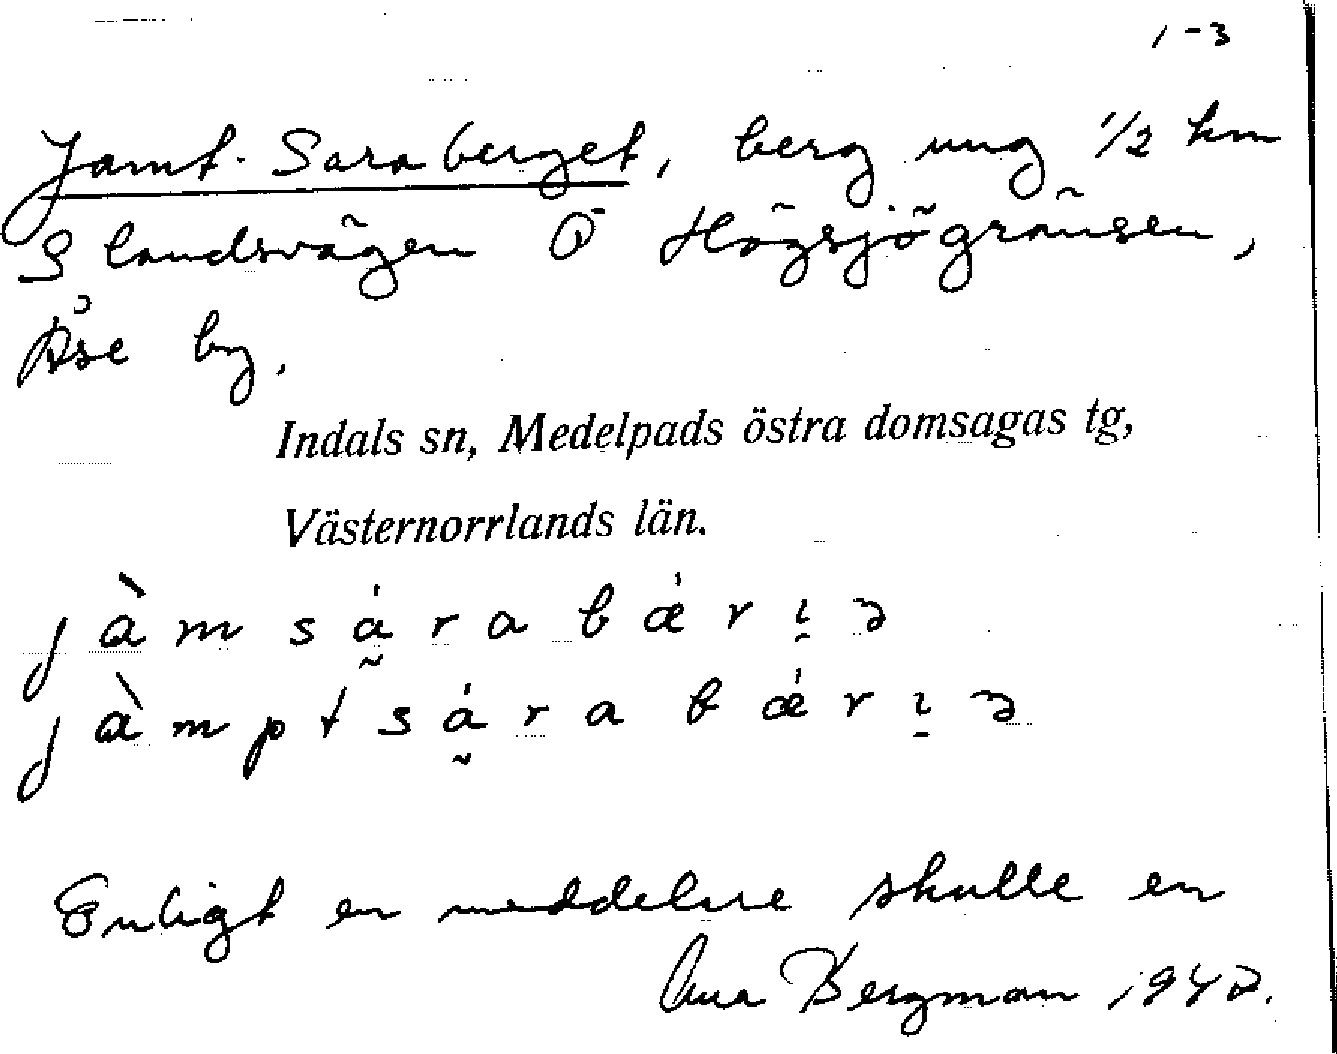 1-3
Jamt-Saraberget, berg ung 1/2 km
S landsvägen Ö Högsjögränsen,
Åse by.
Indals sn, Medelpads östra domsagas tg,
Västernorrlands län.
jàmsá̰rabǽrı̠ə
jàmptsá̰rabǽrı̠ə
Enligt en meddelare skulle en
Ana Bergman 1942.